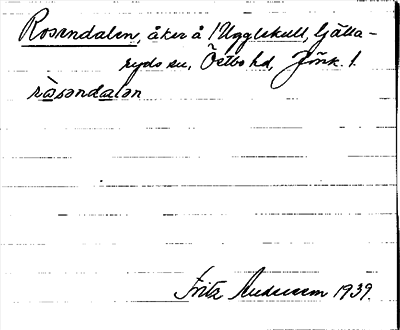 Rosendalen, åker å 1 Ugglekull, Ljötta-
ryds sn, Östbo hd, Jönk. l.
ròsəndalən
Fritz Andersson 1939.